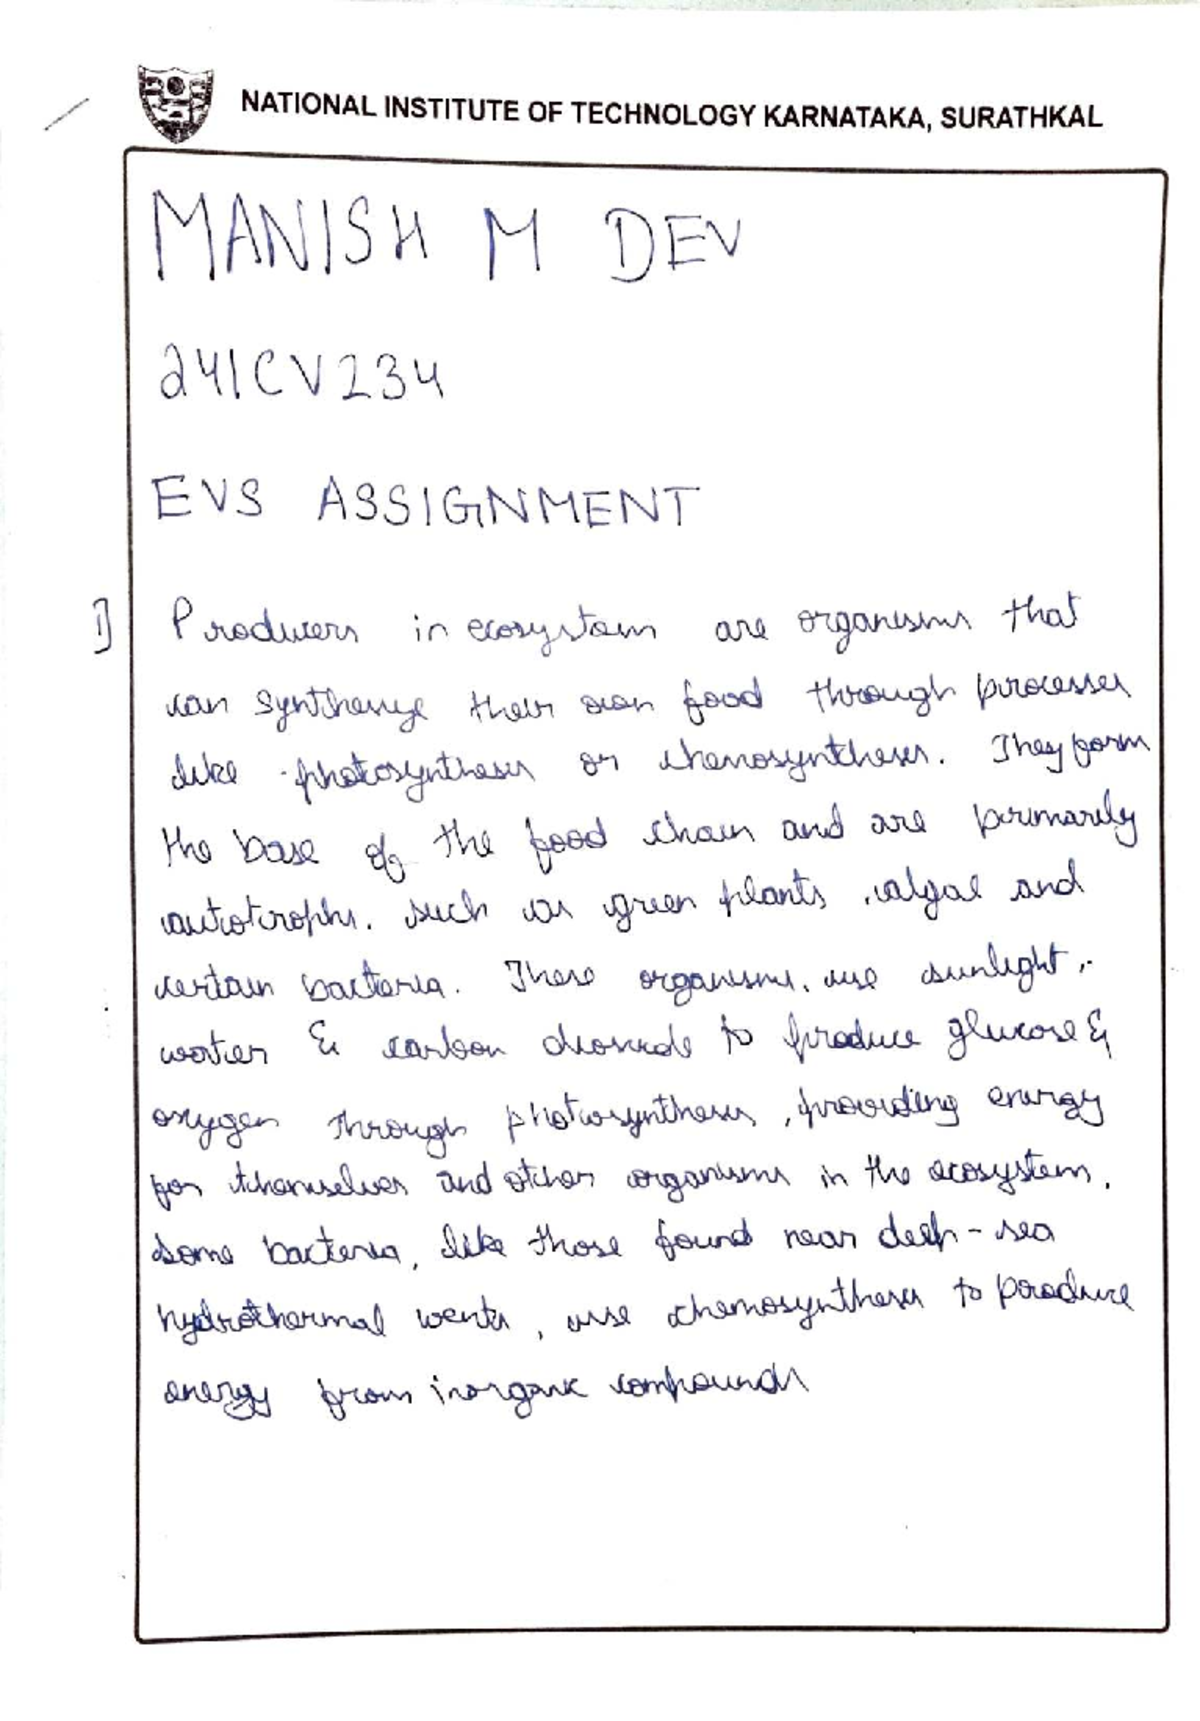 NATIONAL INSTITUTE OF TECHNOLOGY KARNATAKA, SURATHKAL
MANISH M DEV
241CV234
EVS ASSIGNMENT
1] Producers in ecosystem are organisms that
can synthesize their own food through processes
like photosynthesis or chemosynthesis. They form
the base of the food chain and are primarily
autotrophs. such as green plants, algae and
certain bacteria. These organisms. use sunlight,
water & carbon dioxide to produce glucose &
oxygen through photosynthesis, providing energy
for themselves and other organisms in the ecosystem.
Some bacteria, like those found near deep-sea
hydrothermal vents, use chemosynthesis to produce
energy from inorganic compounds